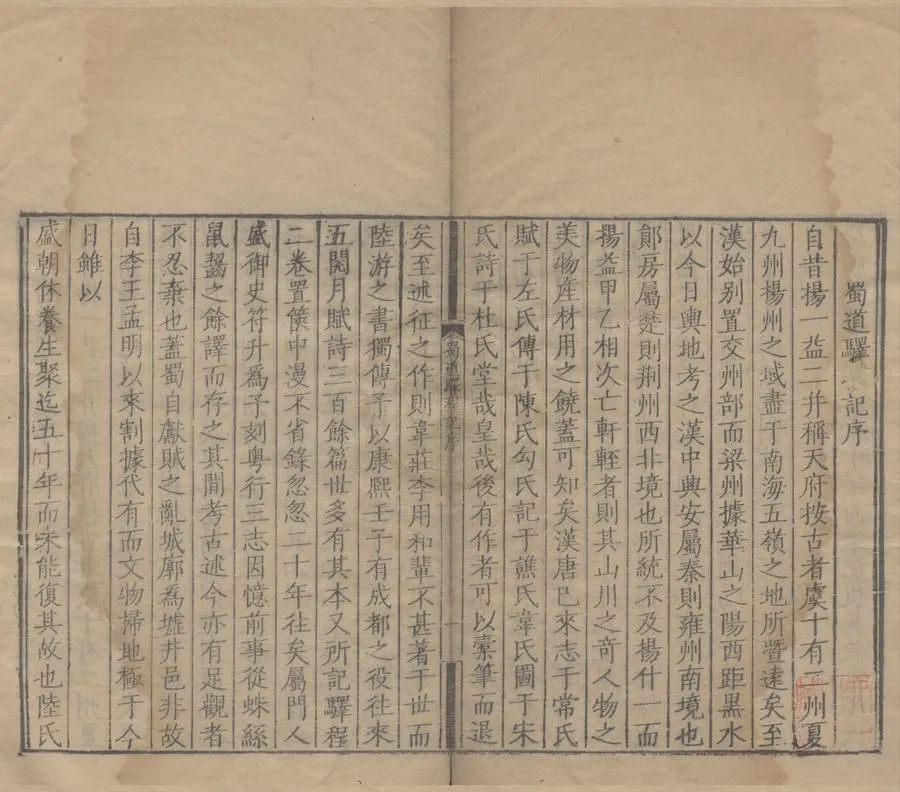 蜀道驛　記序
自昔揚一益二并稱天府按古者虞十有　州夏
九州揚州之域盡于南海五嶺之地所暨遠矣至
漢始别置交州部而梁州據華山之陽西距黒水
以今日輿地考之漢中興安屬秦則雍州南境也
鄖房屬楚則荆州西非境也所統不及揚什一而
揚益甲乙相次亡軒輊者則其山川之竒人物之
美物産材用之饒蓋可知矣漢唐已來志于常氏
賦于左氏傳于陳氏勾氏記于譙氏韋氏圖于宋
氏詩于杜氏堂哉皇哉後有作者可以橐筆而退
蜀道驛程記序
一
矣至述征之作則韋莊李用和輩不甚著于世而
陸游之書獨傳予以康熈壬子有成都之役往來
五閱月賦詩三百餘篇世多有其本又所記驛程
二卷置篋中漫不省錄忽忽二十年往矣屬門人
盛御史符升爲予刻粤行三志因憶前事從蛛絲
鼠齧之餘譯而存之其間考古述今亦有足觀者
不忍棄也蓋蜀自獻賊之亂城郭爲墟井邑非故
自李王孟明以來割據代有而文物掃地極于今
日雖以
盛朝休養生聚迄五十年而未能復其故也陸氏